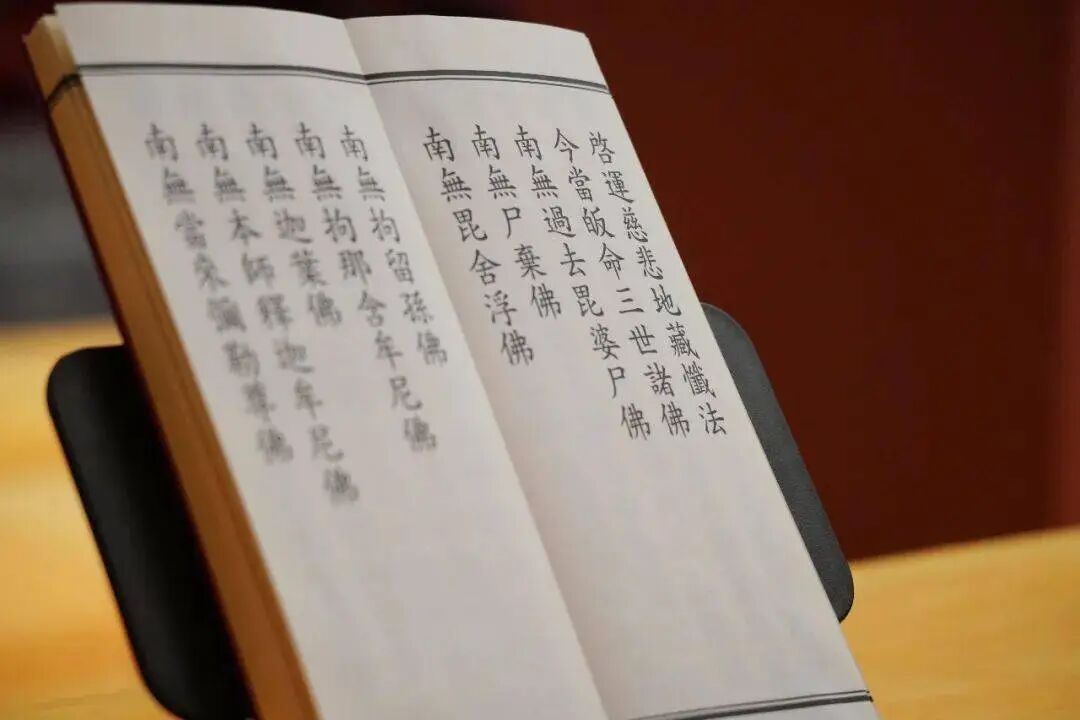 啓運慈悲地藏懺法
今當皈命三世諸佛
南無過去毘婆尸佛
南無尸棄佛
南無毘舍浮佛
南無拘留孫佛
南無拘那舍牟尼佛
南無迦葉佛
南無本師釋迦牟尼佛
南無當來彌勒尊佛